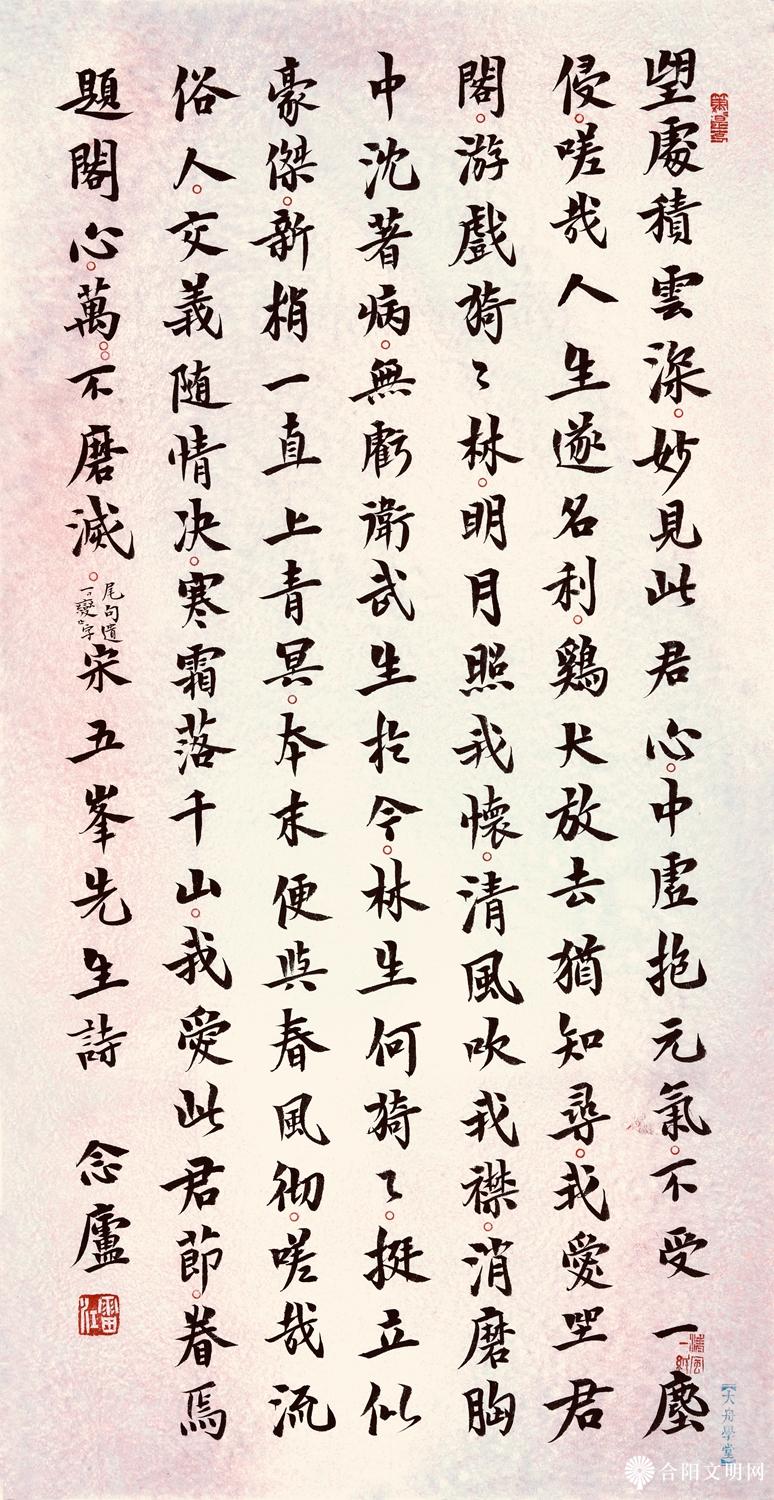 望處積雲深。妙見此君心。中虛抱元氣。不受一塵
侵。嗟哉人生逐名利。鷄犬放去猶知尋。我愛坐君
閣。游戲猗〻林。明月照我懷。清風吹我襟。消磨胸
中沈著病。無虧衛武生於今。林生何猗〻。挺立似
豪傑。新梢一直上青冥。本末便與春風徹。嗟哉流
俗人。交義随情决。寒霜落千山。我愛此君節。眷焉
題閣心。萬不磨滅。尾句遺一變字 宋五峯先生詩 念廬
雷江
清風一紙
【大舟學堂】
合阳文明网